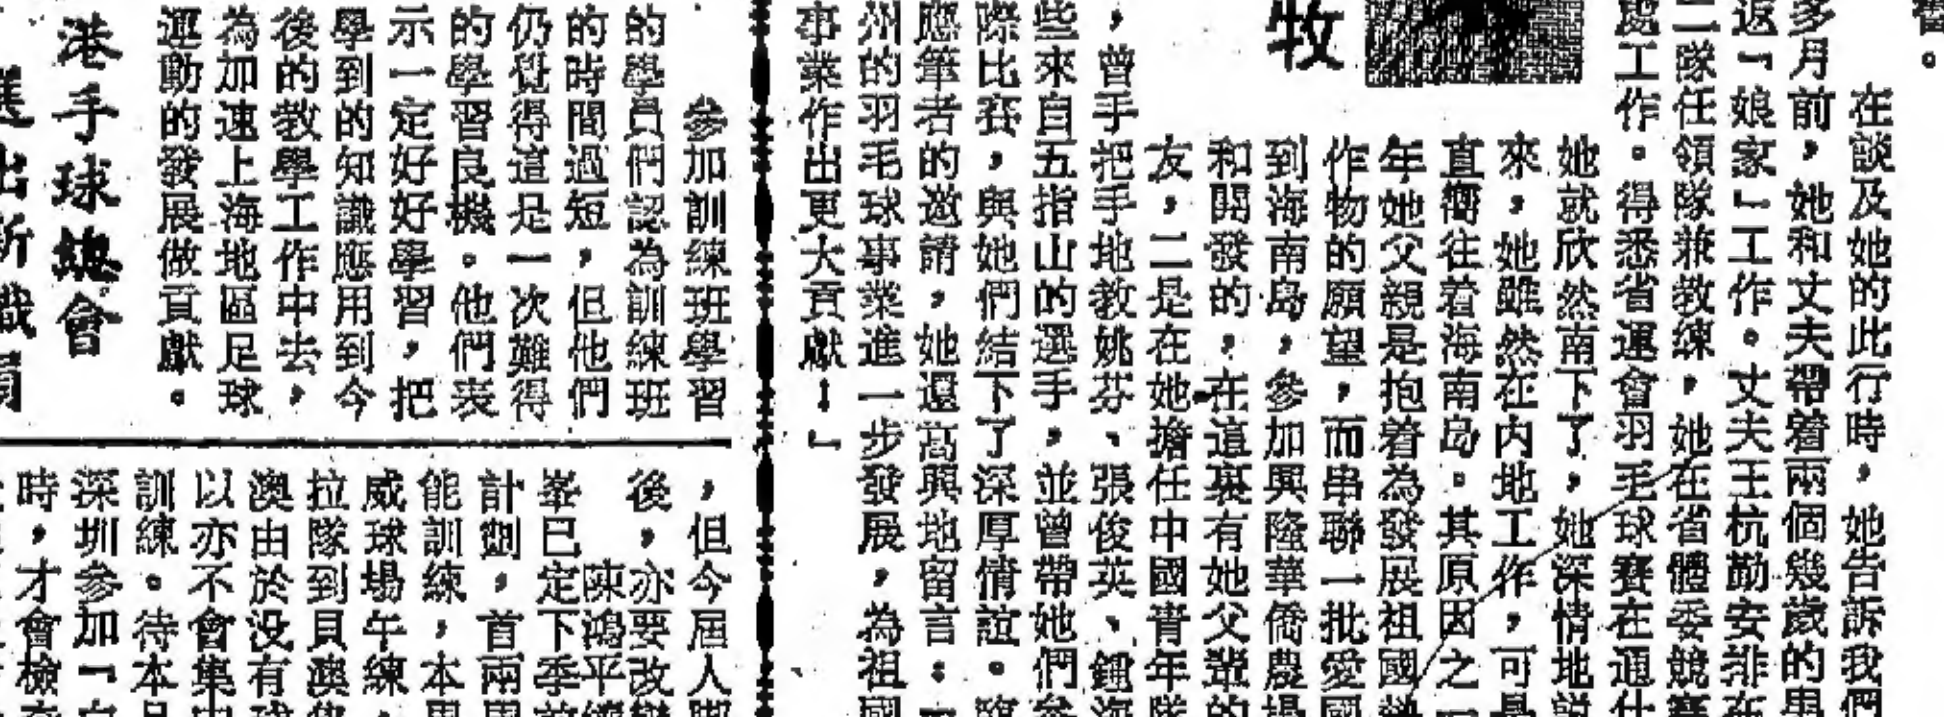 牧
在談及她的此行時，她告訴我們
多月前，她和丈夫帶着兩個幾歲的
返「娘家」工作。丈夫王杭勤安排在
二隊任領隊兼教練，她在省體委競賽
處工作。得悉省運會羽毛球賽在通什
她就欣然南下了，她深情地説
來，她雖然在內地工作，可是
直嚮往着海南島。其原因之一
年她父親是抱着為發展祖國
作物的願望，而串聯一批愛國
到海南島，參加興隆華僑農場
和開發的，在這裏有她父輩的
友，二是在她擔任中國青年隊
，曾手把手地教姚芬、張俊英、鍾海
些來自五指山的選手，並曾帶她們參
際比賽，與她們結下了深厚情誼。臨
應筆者的邀請，她還高興地留言：「
州的羽毛球事業進一步發展，為祖國
事業作出更大貢獻！」
參加訓練班學習
的學員們認為訓練班
的時間過短，但他們
仍覺得這是一次難得
的學習良機。他們表
示一定好好學習，把
學到的知識應用到今
後的教學工作中去，
為加速上海地區足球
運動的發展做貢獻。
港手球總會
選出新職員
，但今屆人腳
後，亦要改變
陳鴻平
峯已定下季前
計劃，首兩周
能訓練，本周
威球場午練，
拉隊到貝澳集
澳由於没有球
以亦不會集中
訓練。待本月
深圳參加「
時，才會檢